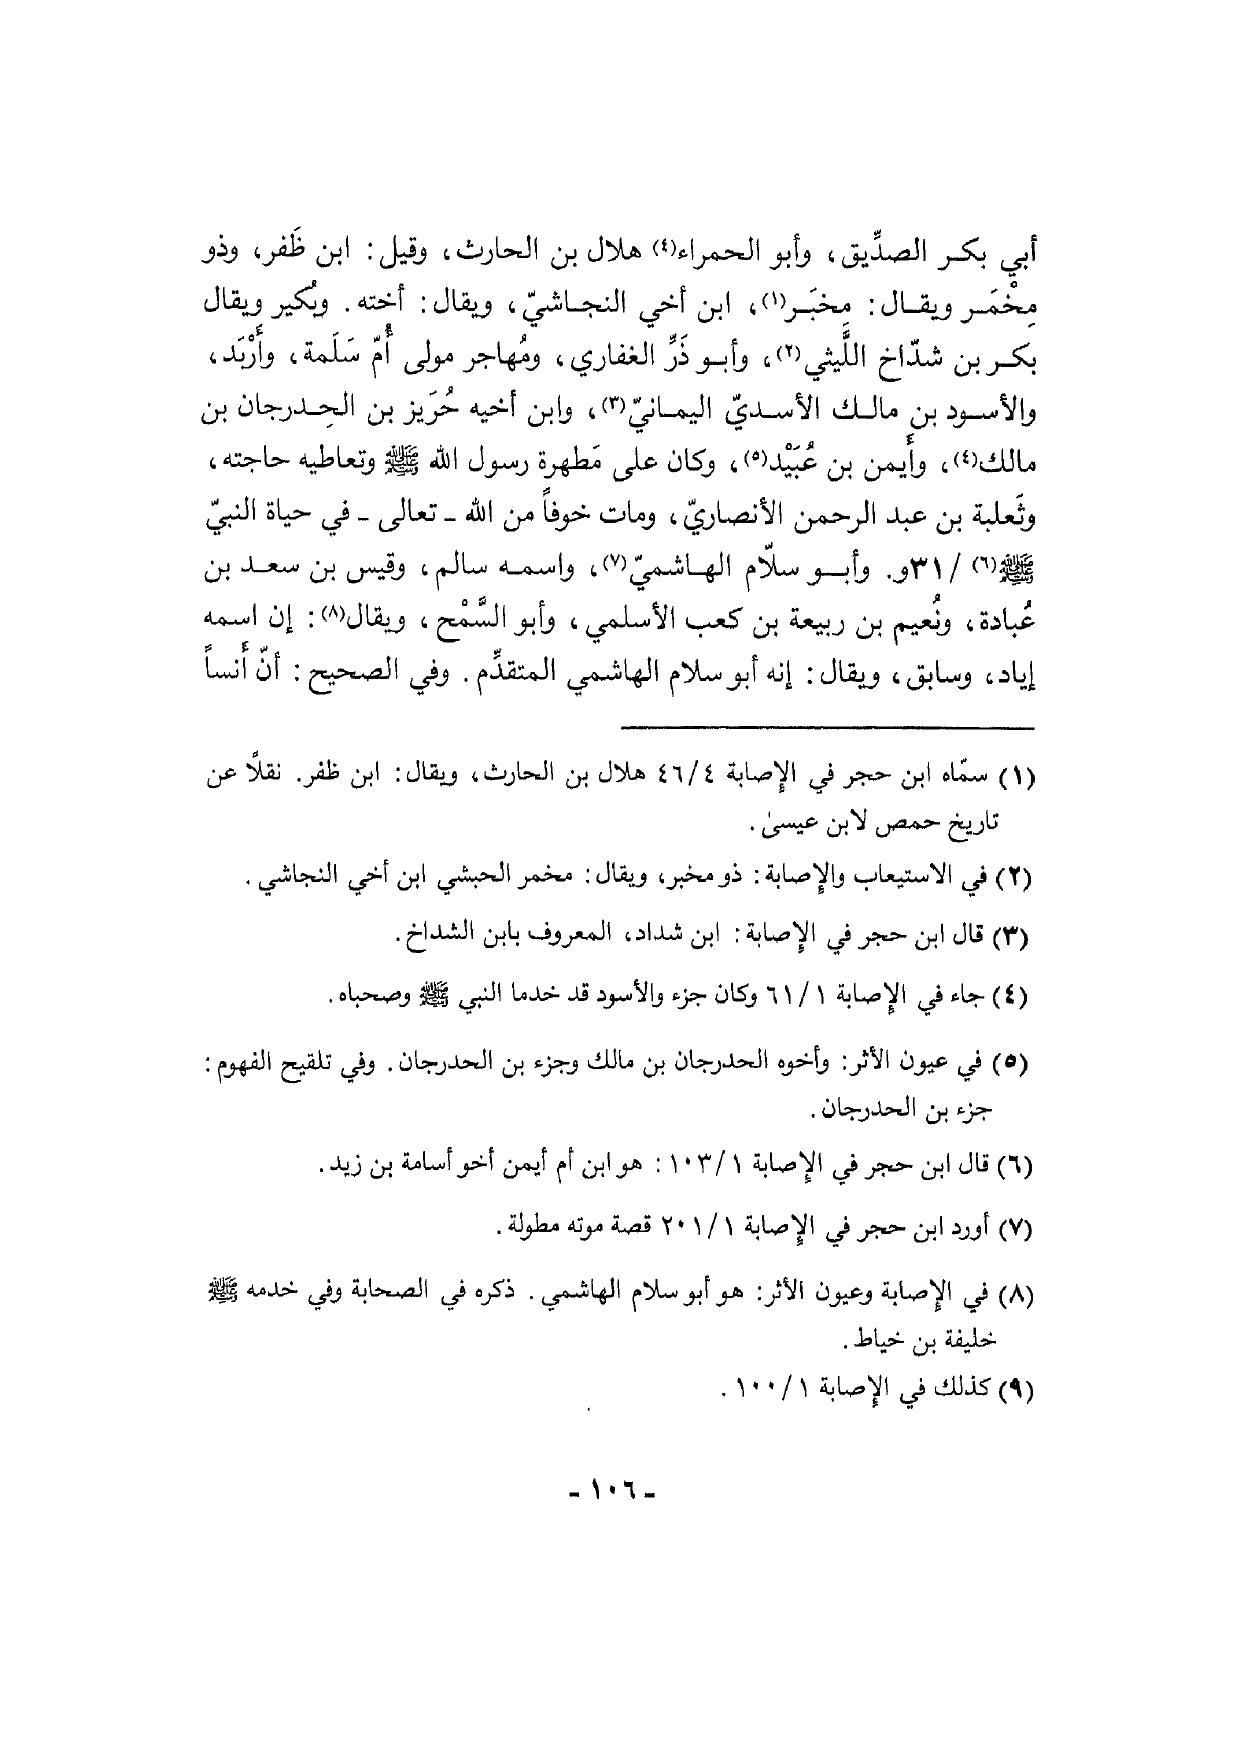 أبي بكر الصدِّيق، وأبو الحمراء(٤) هلال بن الحارث، وقيل: ابن ظَفر، وذو
مِخْمَر ويقال: مِخبَر(١)، ابن أخي النجاشيّ، ويقال: أخته. وبُكير ويقال
بكر بن شدّاخ اللَّيثي(٢)، وأبو ذَرٍّ الغفاري، ومُهاجر مولى أُمّ سَلَمة، وأَرْبَد،
والأسود بن مالك الأسديّ اليمانيّ(٣)، وابن أخيه حُرَيز بن الحِدرجان بن
مالك(٤)، وأَيمن بن عُبَيْد(٥)، وكان على مَطهرة رسول الله ﷺ وتعاطيه حاجته،
وثَعلبة بن عبد الرحمن الأنصاريّ، ومات خوفاً من الله ـ تعالى ـ في حياة النبيّ
ﷺ(٦) /٣١و. وأبو سلّام الهاشميّ(٧)، واسمه سالم، وقيس بن سعد بن
عُبادة، ونُعيم بن ربيعة بن كعب الأسلمي، وأبو السَّمْح، ويقال(٨): إن اسمه
إياد، وسابق، ويقال: إنه أبو سلام الهاشمي المتقدِّم. وفي الصحيح: أنّ أَنساً
(١) سمّاه ابن حجر في الإصابة ٤٦/٤ هلال بن الحارث، ويقال: ابن ظفر. نقلاً عن
تاريخ حمص لابن عيسىٰ.
(٢) في الاستيعاب والإصابة: ذو مخبر، ويقال: مخمر الحبشي ابن أخي النجاشي.
(٣) قال ابن حجر في الإصابة: ابن شداد، المعروف بابن الشداخ.
(٤) جاء في الإصابة ٦١/١ وكان جزء والأسود قد خدما النبي ﷺ وصحباه.
(٥) في عيون الأثر: وأخوه الحدرجان بن مالك وجزء بن الحدرجان. وفي تلقيح الفهوم:
جزء بن الحدرجان.
(٦) قال ابن حجر في الإصابة ١٠٣/١: هو ابن أم أيمن أخو أسامة بن زيد.
(٧) أورد ابن حجر في الإصابة ٢٠١/١ قصة موته مطولة.
(٨) في الإصابة وعيون الأثر: هو أبو سلام الهاشمي. ذكره في الصحابة وفي خدمه ﷺ
خليفة بن خياط.
(٩) كذلك في الإصابة ١٠٠/١.
- ١٠٦ -